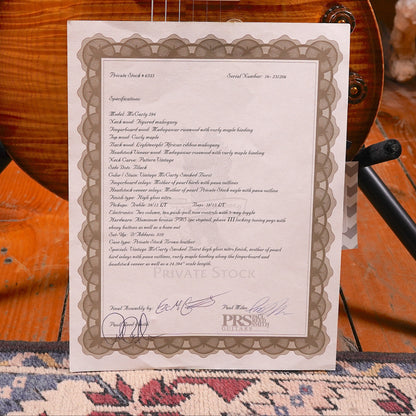 Private Stock # 6333 Serial Number: 16-231206
Specifications:
Model: McCarty 594
Neck wood: Figured mahogany
Fingerboard wood: Madagascar rosewood with curly maple binding
Top wood: Curly maple
Back wood: Lightweight African ribbon mahogany
Headstock Veneer wood: Madagascar rosewood with curly maple binding
Neck Carve: Pattern Vintage
Side Dots: Black
Color / Stain: Vintage McCarty Smoked Burst
Fingerboard inlays: Mother of pearl birds with paua outlines
Headstock veneer inlays: Mother of pearl Private Stock eagle with paua outline
Finish type: High gloss nitro
Pickups: Treble: 58/15 LT Bass: 58/15 LT
Electronics: Two volume, two push-pull tone controls with 3-way toggle
Hardware: Aluminum bronze PRS two stoptail, phase III locking tuning pegs with
ebony buttons as well as a bone nut
Set-Up: D'Addario .010
Case type: Private Stock Brown leather
Specials: Vintage McCarty Smoked Burst high gloss nitro finish, mother of pearl
bird inlays with paua outlines, curly maple binding along the fingerboard and
headstock veneer as well as a 24.594" scale length.
PRIVATE STOCK
Final Assembly by: Paul Miles
Paul
PRS
GUITARS